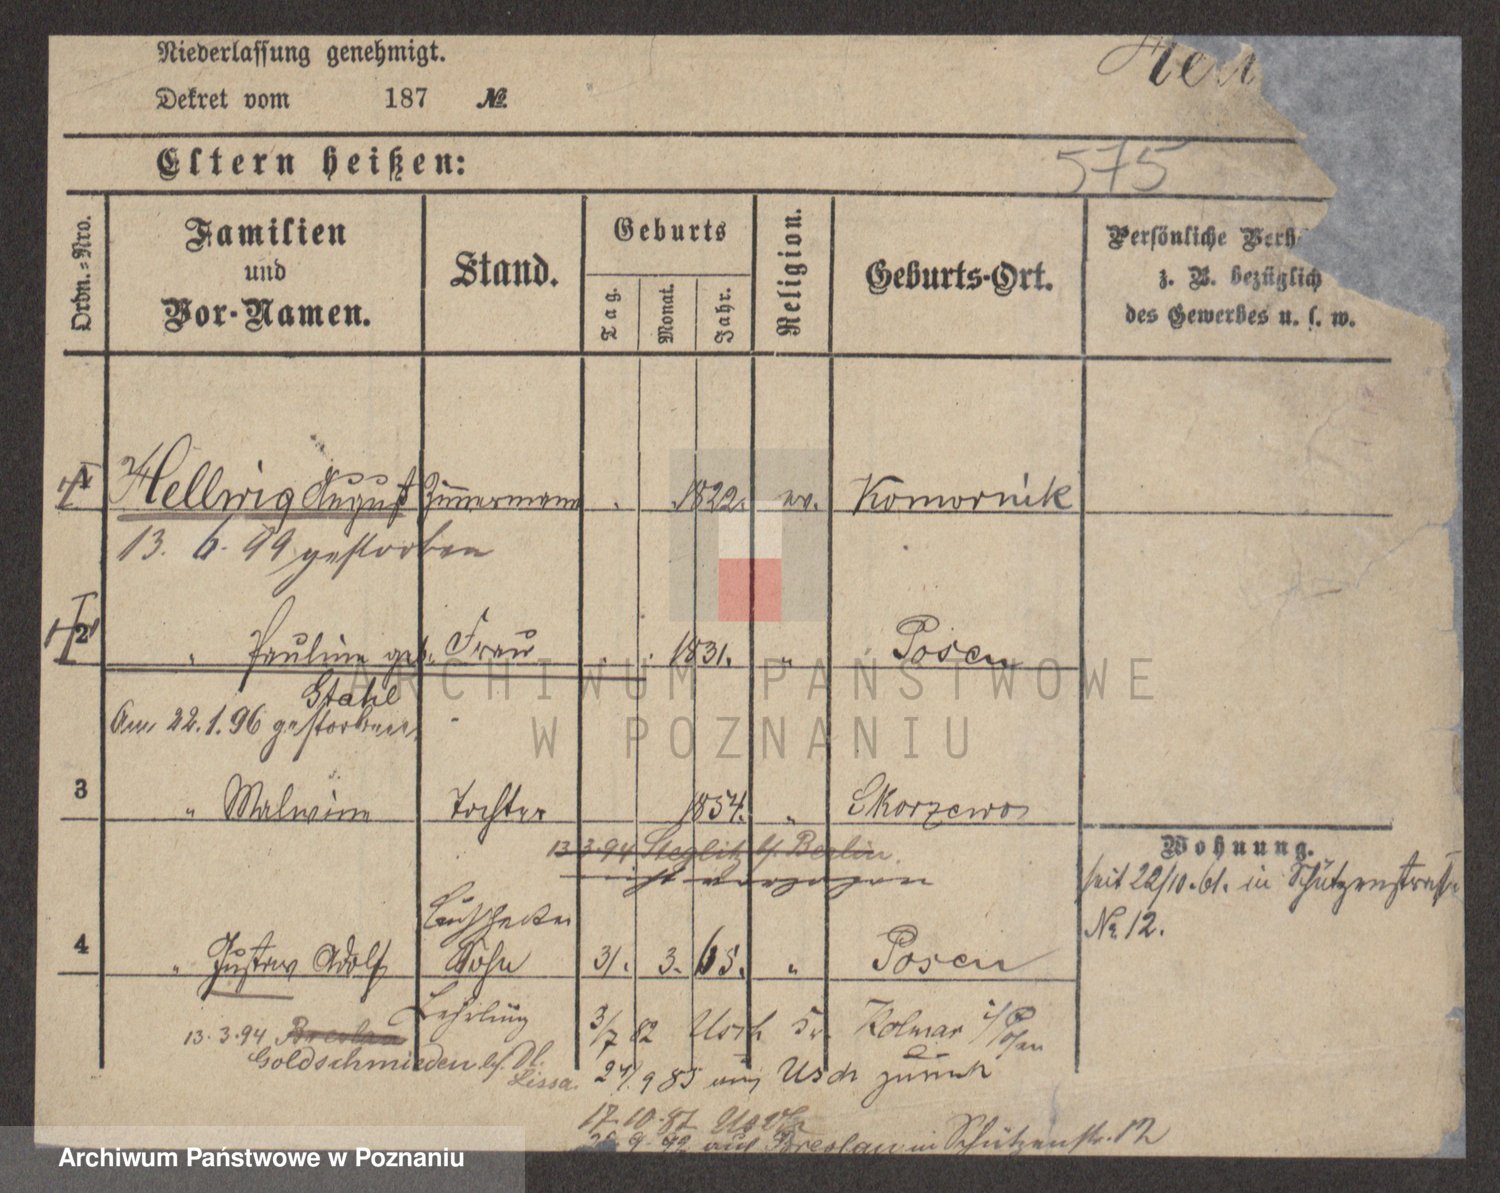 Niederlassung genehmigt.
Dekret vom 187 №
575
Eltern heißen:
Ordn.=Nro.
Familien und Vor-Namen.
Stand.
Geburts
Tag.
Monat.
Jahr.
Religion.
Geburts-Ort.
Persönliche Verh
z. B. bezüglich
des Gewerbes u. s. w.
1 Hellwig August Zimmermann 1822. ev. Komornik
13. 6. 99 gestorben
2 " Pauline geb. Frau 1831. " Posen
Stahl
Am 22.1.96 gestorben
3 " Malwine Tochter 1854. " Skorzewo
13 3.94 Steglitz b. Berlin
nicht verzogen
Wohnung.
seit 22/10.61. in Schützenstraße
No 12.
4 " Gustav Adolf Sohn 31. 3. 65. " Posen
Lehrling 3/7 82 Usch Kr. Kolmar i/Posen
13.3.94 Breslau
Goldschmieden b. Dt. Lissa.
24/9 85 aus Usch zurück
17.10.87 Usch
9.92 aus Breslau in Schützenstr. 12
ARCHIWUM PAŃSTWOWE
W POZNANIU
Archiwum Państwowe w Poznaniu